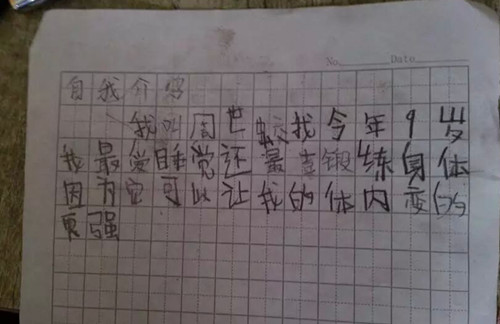 No Date
自我介绍
我叫周世蛟我今年9岁
我最爱睡觉还最喜锻炼身体
因为它可以让我的体内变的
更强